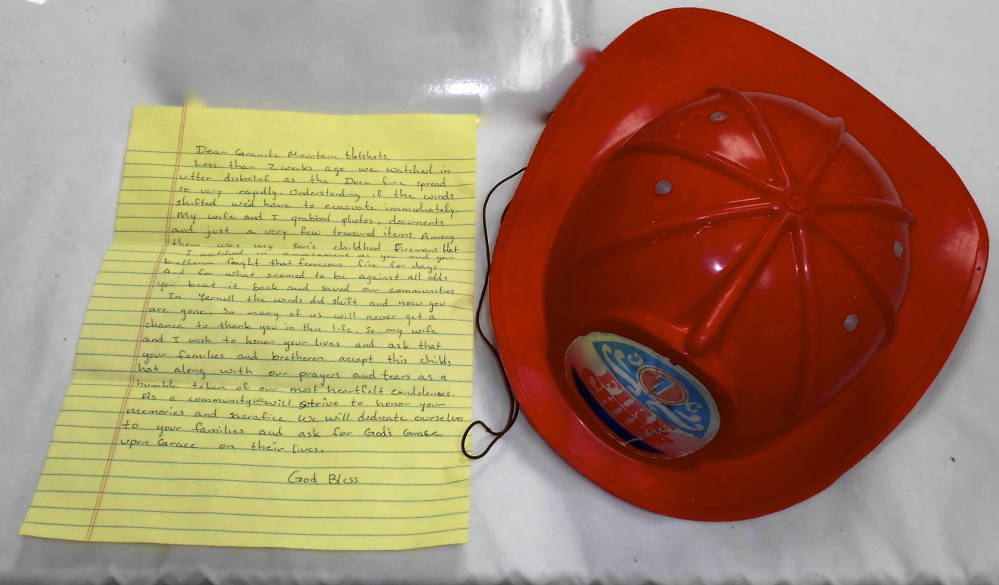 Dear Granite Mountain Hotshots,
Less than 2 weeks ago we watched in
utter disbelief as the Doce fire spread
so very rapidly. Understanding if the winds
shifted we'd have to evacuate immediately.
My wife and I grabbed photos, documents
and just a very few treasured items. Among
them was my son's childhood Firemans Hat
I watched in amazement as you and your
bretheren fought that ferocious fire for days
And for what seemed to be against all odds
you beat it back and saved our communities
In Yarnell the winds did shift and now you
are gone. So many of us will never get a
chance to thank you in this life. So my wife
and I wish to honor your lives and ask that
your families and bretheren accept this childs
hat along with our prayers and tears as a
humble token of our most heartfelt condolences.
As a community we will strive to honor your
memories and sacrafice we will dedicate ourselves
to your families and ask for God's Grace
upon Grace on their lives.
God Bless
1
FIRE
CHIEF